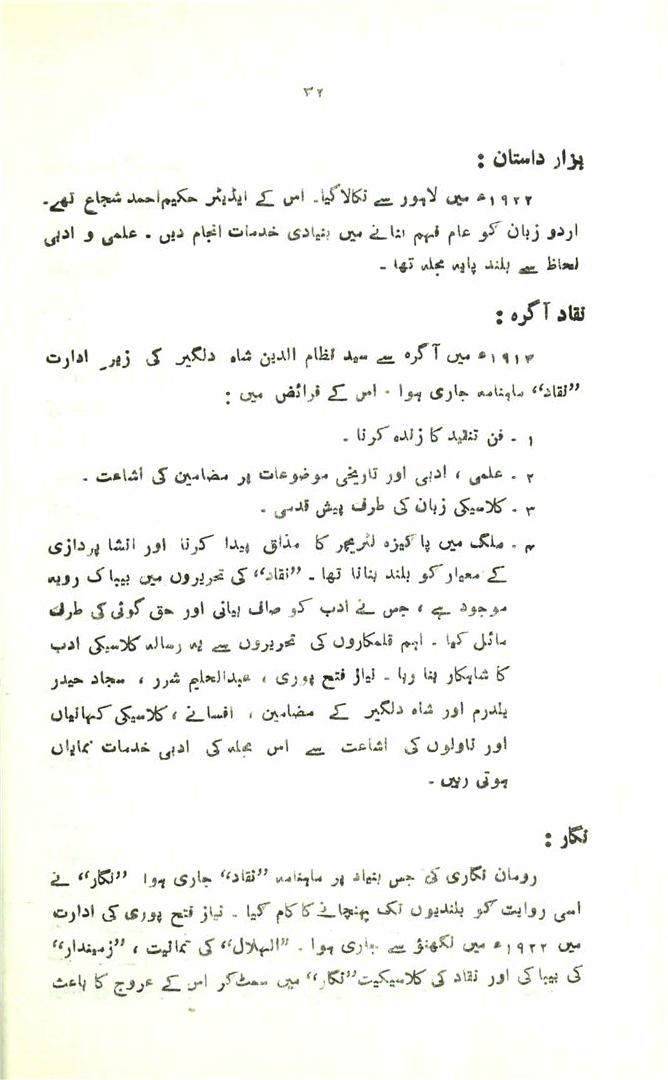 ۳۲
ہزار داستان :
۱۹۲۲ء میں لاہور سے نکالا گیا۔ اس کے ایڈیٹر حکیم احمد شجاع تھے۔
اردو زبان کو عام فہم بنانے میں بنیادی خدمات انجام دیں ۔ علمی و ادبی
لحاظ سے بلند پایہ مجلہ تھا ۔
نقاد آگرہ :
۱۹۱۳ء میں آگرہ سے سید نظام الدین شاہ دلگیر کی زیر ادارت
”نقاد“ ماہنامہ جاری ہوا ۔ اس کے فرائض میں :
۱ ۔ فن تنقید کا زندہ کرنا ۔
۲ ۔ علمی ، ادبی اور تاریخی موضوعات پر مضامین کی اشاعت ۔
۳ ۔ کلاسیکی زبان کی طرف پیش قدمی ۔
۴ ۔ ملک میں پاکیزہ لٹریچر کا مذاق پیدا کرنا اور انشا پردازی
کے معیار کو بلند بنانا تھا ۔ ”نقاد“ کی تحریروں میں بیباک رویہ
موجود ہے ، جس نے ادب کو صاف بیانی اور حق گوئی کی طرف
مائل کیا ۔ اہم قلمکاروں کی تحریروں سے یہ رسالہ کلاسیکی ادب
کا شاہکار بنا رہا ۔ نیاز فتح پوری ، عبدالحلیم شرر ، سجاد حیدر
یلدرم اور شاہ دلگیر کے مضامین ، افسانے ، کلاسیکی کہانیاں
اور ناولوں کی اشاعت سے اس مجلہ کی ادبی خدمات نمایاں
ہوتی رہیں ۔
نگار :
رومان نگاری کی جس بنیاد پر ماہنامہ ”نقاد“ جاری ہوا ”نگار“ نے
اسی روایت کو بلندیوں تک پہنچانے کا کام کیا ۔ نیاز فتح پوری کی ادارت
میں ۱۹۲۲ء میں لکھنؤ سے جاری ہوا ۔ ”الہلال“ کی ، ”زمیندار“
کی بیباکی اور نقاد کی کلاسیکیت ”نگار“ میں سمٹ کر اس کے عروج کا باعث